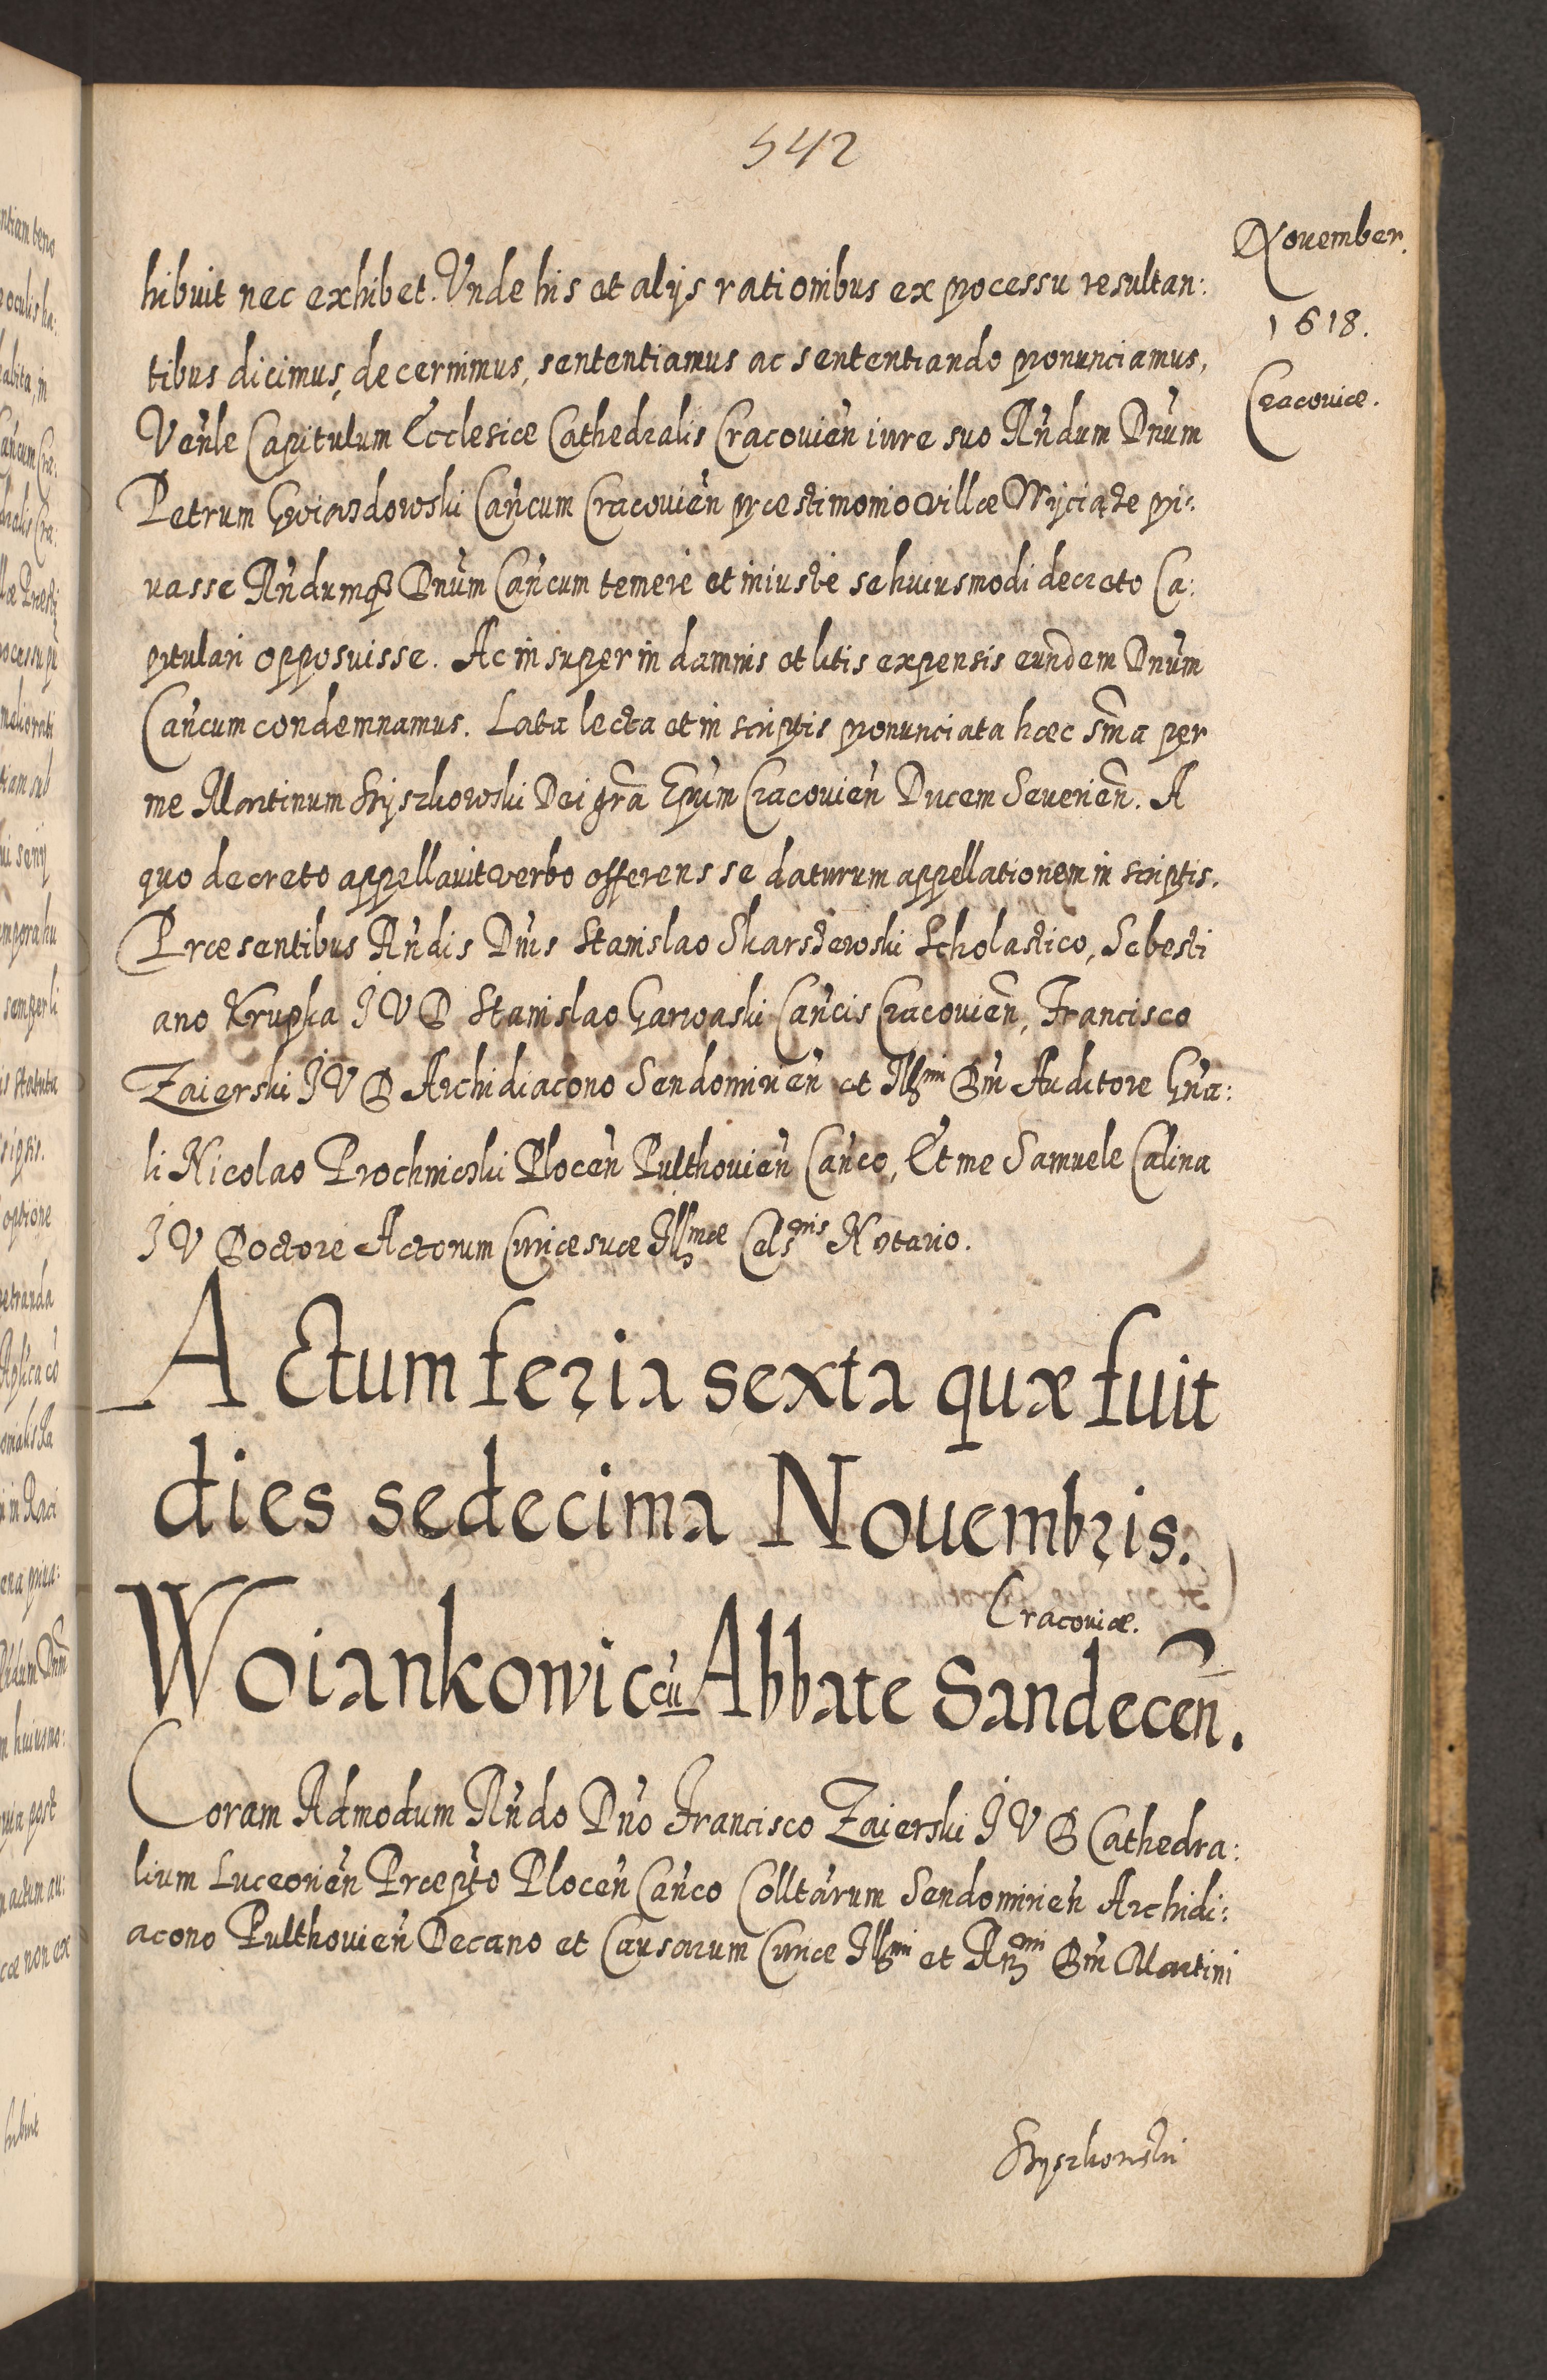 542
November.
1618.
Cracoviæ.
hibuit nec exhibet. Vnde his et alijs rationibus ex processu resultan:
tibus dicimus, decernimus, sententiamus ac sententiando pronunciamus,
Venl̃e Capitulum Ecclesiæ Cathedralis Cracovień iure suo Rńdum Dńum
Petrum Gwiazdowski Cańcum Cracovień præstimonio villæ Wyciąże pri:
uasse Rńdumq3 Dńum Cańcum temere et iniuste se huiusmodi decreto Ca:
pitulari opposuisse. Ac insuper in damnis et litis expensis eundem Dńum
Cańcum condemnamus. Lata lecta et in scriptis pronunciata hæc sm̃a per
me Martinum Szyszkowski Dei grã Epũm Cracovień Ducem Severień. A
quo decreto appellavit verbo offerens se daturum appellationem in scriptis.
Præsentibus Rńdis Dńis Stanislao Skarszewski Scholastico, Sebesti
ano Krupka J V D Stanislao Garwaski Cańcis Cracovień, Francisco
Zaierski J V D Archidiacono Sendomirień et Illmi Dńi Auditore Gńa:
li Nicolao Prochnicski Plocéń Pulthovień Cańco, Et me Samuele Calina
J V Doctore Actorum Curiæ suæ Illmæ Celsnis Notario.
Actum feria sexta quæ fuit
dies sedecima Nouembris.
Cracoviæ.
Woiankowic cũ Abbate Sandeceñ.
Coram Admodum Rńdo Dńo Francisco Zaierski J V D Cathedra:
lium Luceorień Præpto Plocéń Cańco Colltarum Sendomirień Archidi:
acono Pulthovień Decano et Causarum Curiæ Illmi et Rmi Dńi Martini
Szyszkowski